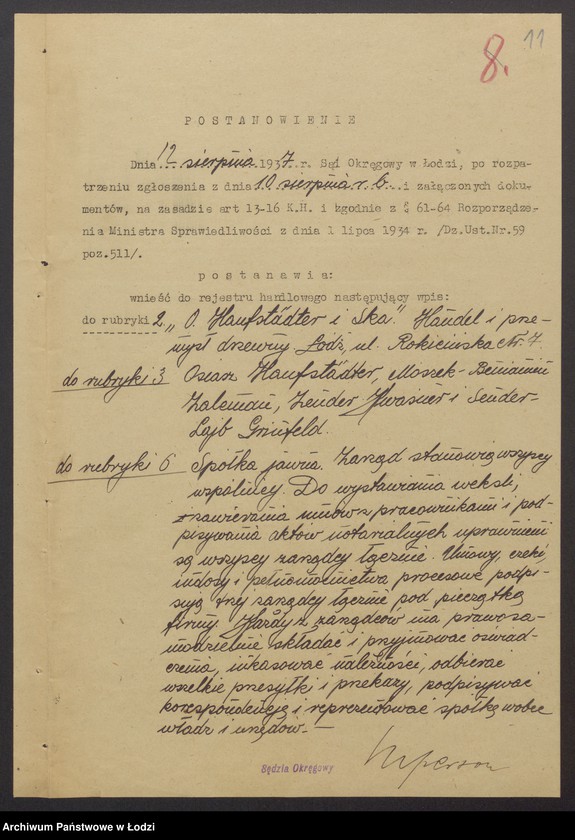 8. 11
POSTANOWIENIE
Dnia 12 sierpnia 1937 r. Sąd Okręgowy w Łodzi, po rozpa-
trzeniu zgłoszenia z dnia 10 sierpnia r. b. i załączonych doku-
mentów, na zasadzie art 13-16 K.H. i zgodnie z § 61-64 Rozporządze-
nia Ministra Sprawiedliwości z dnia 1 lipca 1934 r. /Dz.Ust.Nr.59
poz.511/.
postanawia:
wnieść do rejestru handlowego następujący wpis:
do rubryki 2 „O. Haufstädter i Ska." Handel i prze-
mysł drzewny Łódź, ul. Rokicińska Nr. 7.
do rubryki 3 Osiasz Haufstädter, Moszek-Beniamin
Zalcman, Zender Kwasner i Sender-
Lajb Grinfeld.
do rubryki 6 Spółka jawna. Zarząd stanowią wszyscy
wspólnicy. Do wystawiania weksli,
zawierania umów z pracownikami i pod-
pisywania aktów notarialnych uprawnieni
są wszyscy zarządcy łącznie. Umowy, czeki,
indosy i pełnomocnictwa procesowe podpi-
sują trzej zarządcy łącznie pod pieczątką
firmy. Każdy z zarządców ma prawo sa-
modzielnie składać i przyjmować oświad-
czenia, inkasować należności, odbierać
wszelkie przesyłki i przekazy, podpisywać
korespondencję i reprezentować spółkę wobec
władz i urzędów.—
Sędzia Okręgowy
Archiwum Państwowe w Łodzi